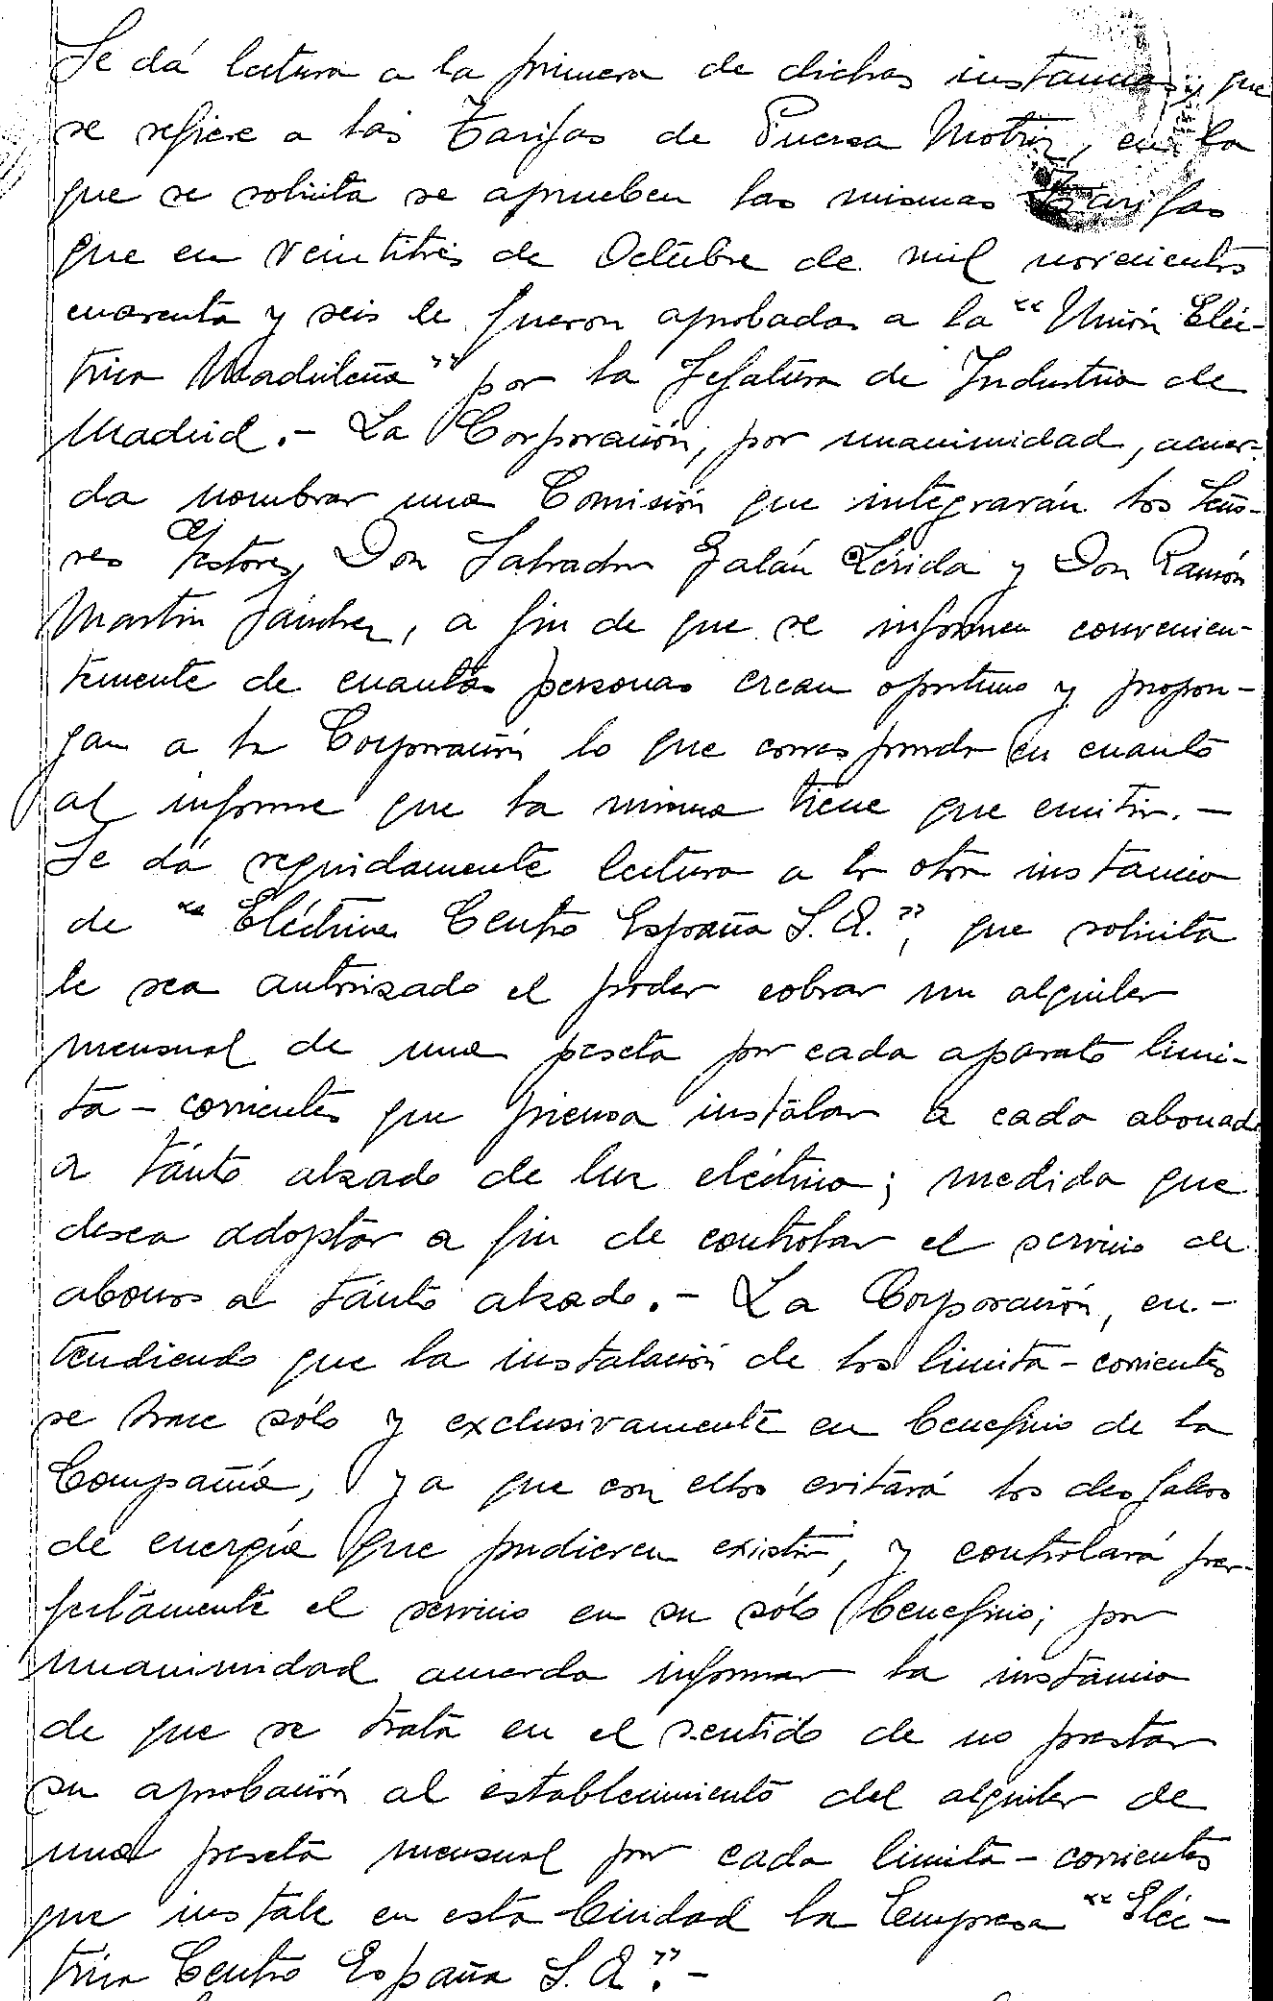 Se dá lectura a la primera de dichas instancias, que
se refiere a las Tarifas de Fuerza Motriz, en la
que se solicita se aprueben las mismas Tarifas
que en veintitrés de Octubre de mil novecientos
cuarenta y seis le fueron aprobadas a la "Unión Eléc-
trica Madrileña" por la Jefatura de Industria de
Madrid.- La Corporación, por unanimidad, acuer-
da nombrar una Comisión que integrarán los Seño-
res Gestores, Don Salvador Galán Lérida y Don Ramón
Martin Sánchez, a fin de que se informen convenien-
temente de cuantas personas crean oportuno y propon-
gan a la Corporación lo que corresponda en cuanto
al informe que la misma tiene que emitir.-
Se dá seguidamente lectura a la otra instancia
de "Eléctrica Centro España S.A.", que solicita
le sea autorizado el poder cobrar un alquiler
mensual de una peseta por cada aparato limi-
ta-corrientes que piensa instalar a cada abonado
a tánto alzado de luz eléctrica; medida que
desea adoptar a fin de controlar el servicio de
abonos a tánto alzado.- La Corporación, en-
tendiendo que la instalación de los limita-corrientes
se hace sólo y exclusivamente en beneficio de la
Compañía, ya que con ellos evitará los desfalcos
de energía que pudieren existir, y controlará per-
fectamente el servicio en su sólo beneficio; por
unanimidad acuerda informar la instancia
de que se trata en el sentido de no prestar
su aprobación al establecimiento del alquiler de
una peseta mensual por cada limita-corrientes
que instale en esta Ciudad la Empresa "Eléc-
trica Centro España S.A.".-